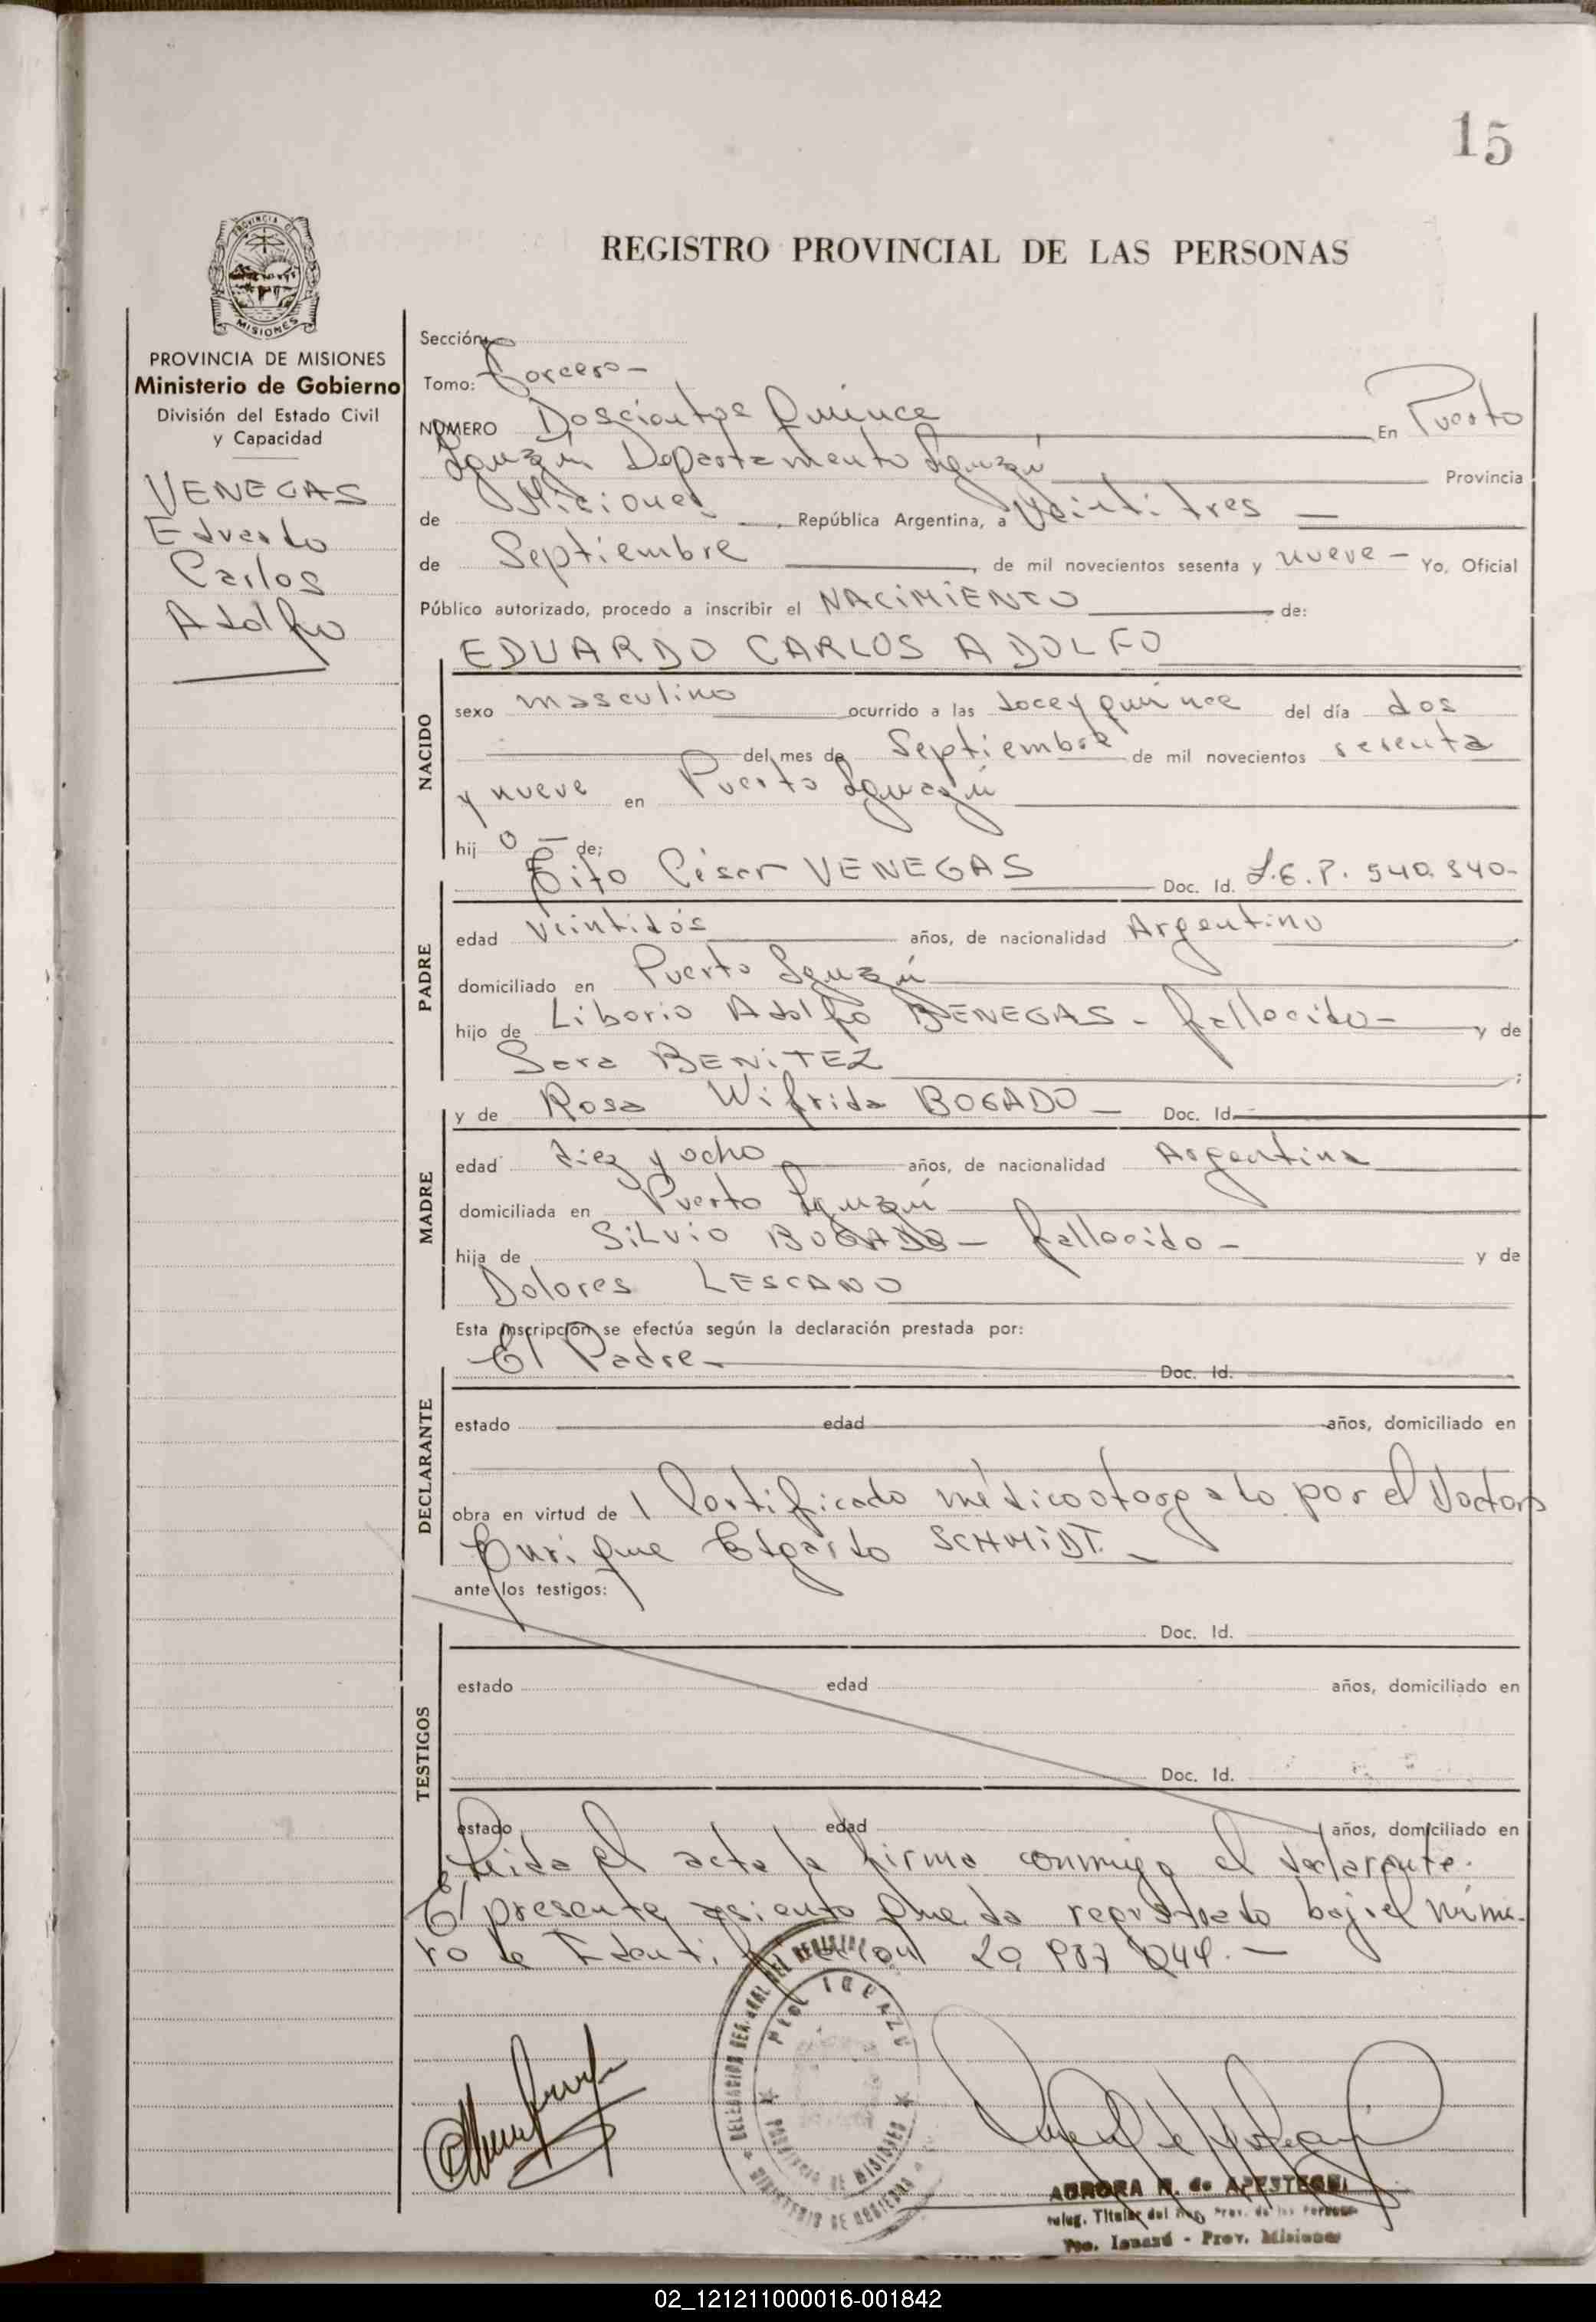 15
REGISTRO PROVINCIAL DE LAS PERSONAS
PROVINCIA DE
MISIONES
PROVINCIA DE MISIONES
Ministerio de Gobierno
División del Estado Civil
y Capacidad
VENEGAS
Eduardo
Carlos
Adolfo
Sección:
Tomo: Tercero-
NUMERO Doscientos Quince En Puerto
Iguazú Departamento Iguazú Provincia
de Misiones, República Argentina, a Veintitres
de Septiembre, de mil novecientos sesenta y nueve- Yo, Oficial
Público autorizado, procedo a inscribir el NACIMIENTO de:
EDUARDO CARLOS ADOLFO
NACIDO
sexo masculino ocurrido a las doce y quince del día dos
del mes de Septiembre de mil novecientos sesenta
y nueve en Puerto Iguazú
hij o de;
Tito César VENEGAS Doc. Id. 540.340-
PADRE
edad veintidós años, de nacionalidad Argentino
domiciliado en Puerto Iguazú
hijo de Liborio Adolfo BENEGAS - fallecido- y de
Sara BENITEZ;
MADRE
y de Rosa Wilfrida BOGADO - Doc. Id.
edad diez y ocho años, de nacionalidad Argentina
domiciliada en Puerto Iguazú
hija de Silvio BOGADO - fallecido - y de
Dolores LESCANO
Esta inscripción se efectúa según la declaración prestada por:
El Padre- Doc. Id.
DECLARANTE
estado edad años, domiciliado en
obra en virtud de 1 Certificado médico otorgado por el Doctor
Enrique Edgardo SCHMIDT.-
ante los testigos:
TESTIGOS
Doc. Id.
estado edad años, domiciliado en
Doc. Id.
estado edad años, domiciliado en
Leida el acta la firma conmigo el declarante.
El presente asiento queda registrado bajo el núme-
ro de Identificación 20.987.044.-
DELEGACION DEL REGISTRO
IGUAZU
PROVINCIA DE MISIONES
MINISTERIO DE
AURORA R. de APESTEGUI
Deleg. Titular del Reg. Prov. de las Personas
Pto. Iguazú - Prov. Misiones
02_121211000016-001842